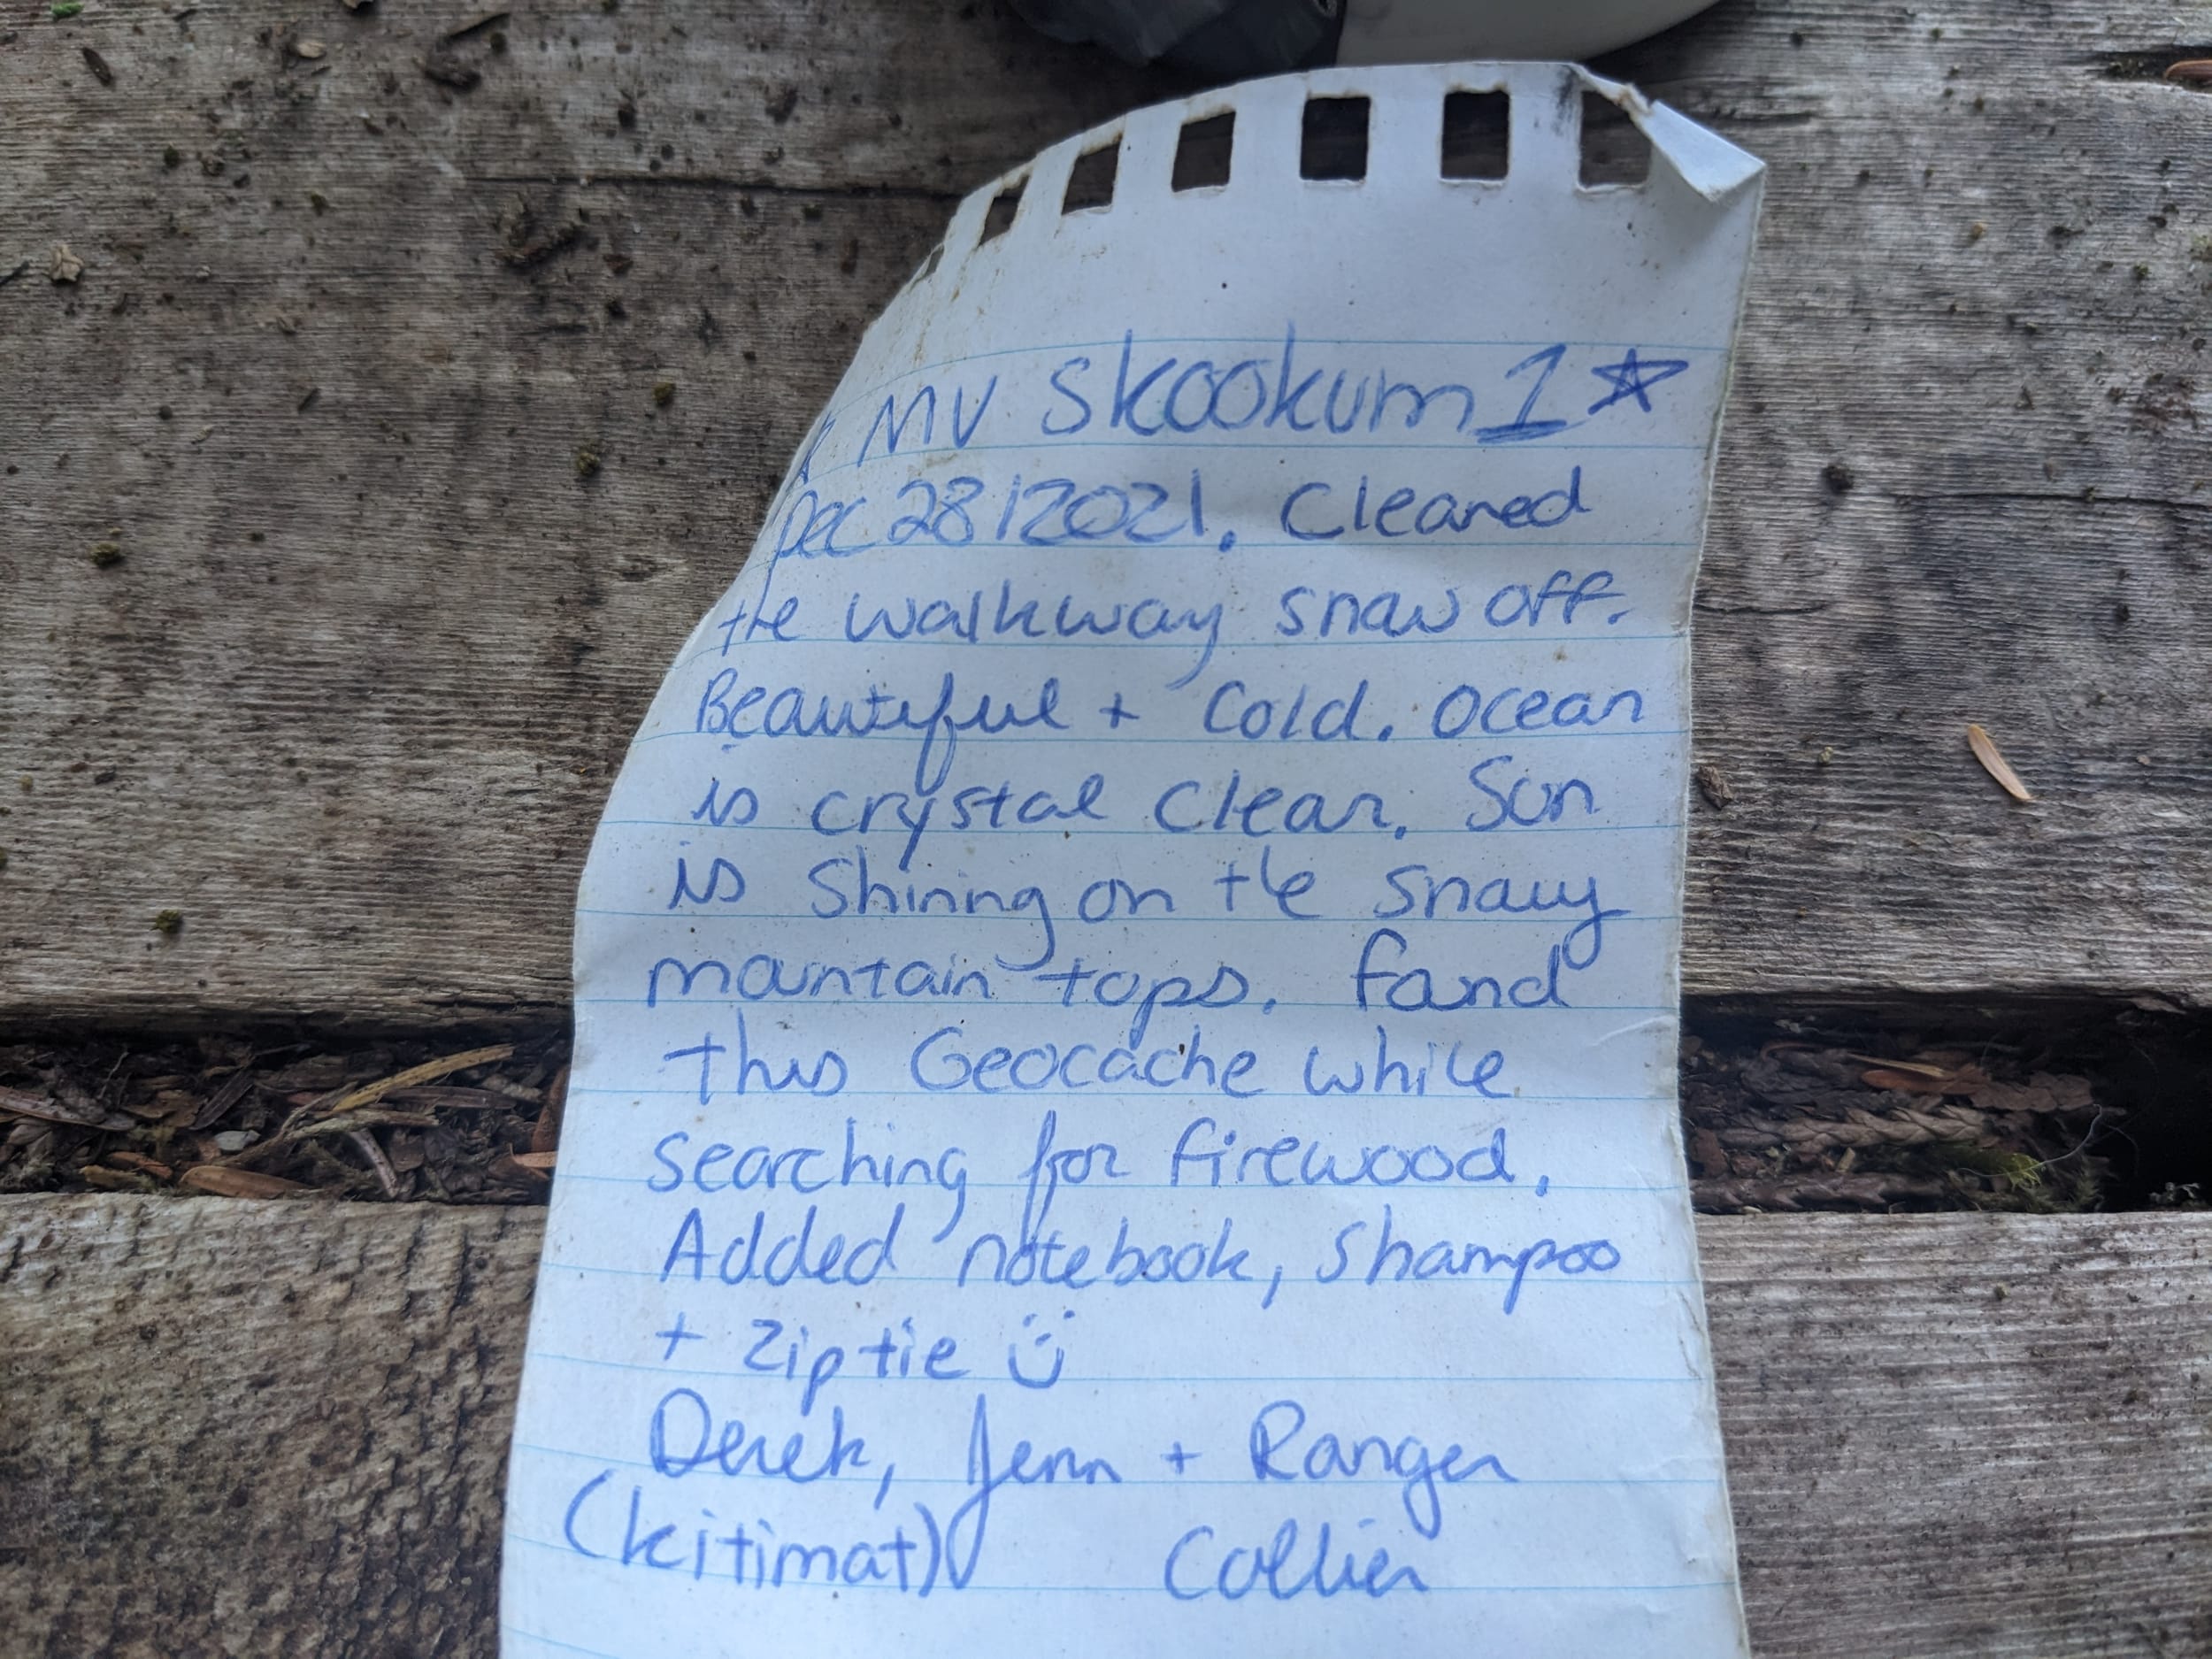 ☆ MV Skookum 1 ☆
Dec 28/2021. Cleared
the walkway snow off.
Beautiful + Cold. Ocean
is crystal clear. Sun
is shining on the snowy
mountain tops. Found
this Geocache while
searching for firewood.
Added notebook, shampoo
+ ziptie ☺
Derek, Jenn + Ranger
(Kitimat) Collier